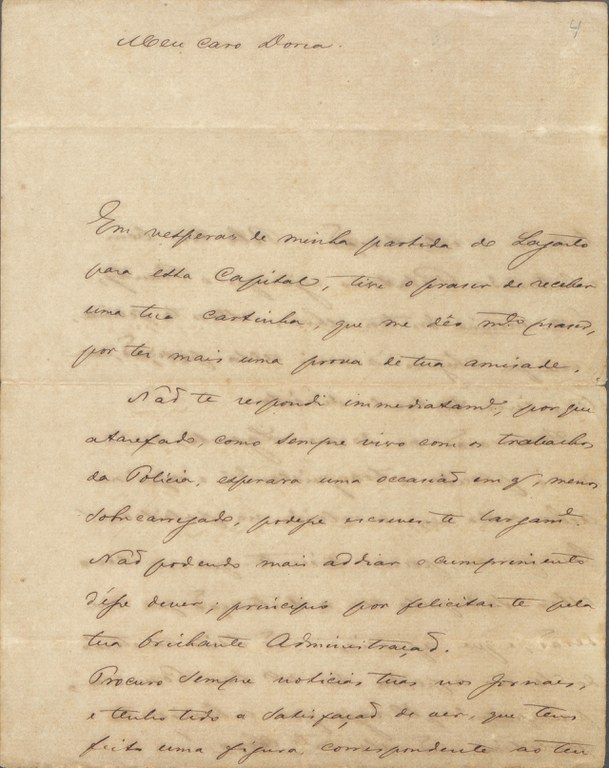 4
Meu caro Doria.
Em vesperas de minha partida do Lagarto
para essa Capital, tive o praser de receber
uma tua cartinha, que me dêo mto praser,
por ter mais uma prova de tua amisade.
Não te respondi immediatamte, por que
atarefado, como sempre vivo com os trabalhos
da Policia, esperava uma occasião em q', menos
sobrecarregado, podesse escrever-te largamte.
Não podendo mais addiar o cumprimento
d'esse dever, principio por felicitar-te pela
tua brilhante Administração.
Procuro sempre noticias tuas nos Jornaes,
e tenho tido a satisfação de ver, que tens
feito uma figura correspondente ao teu